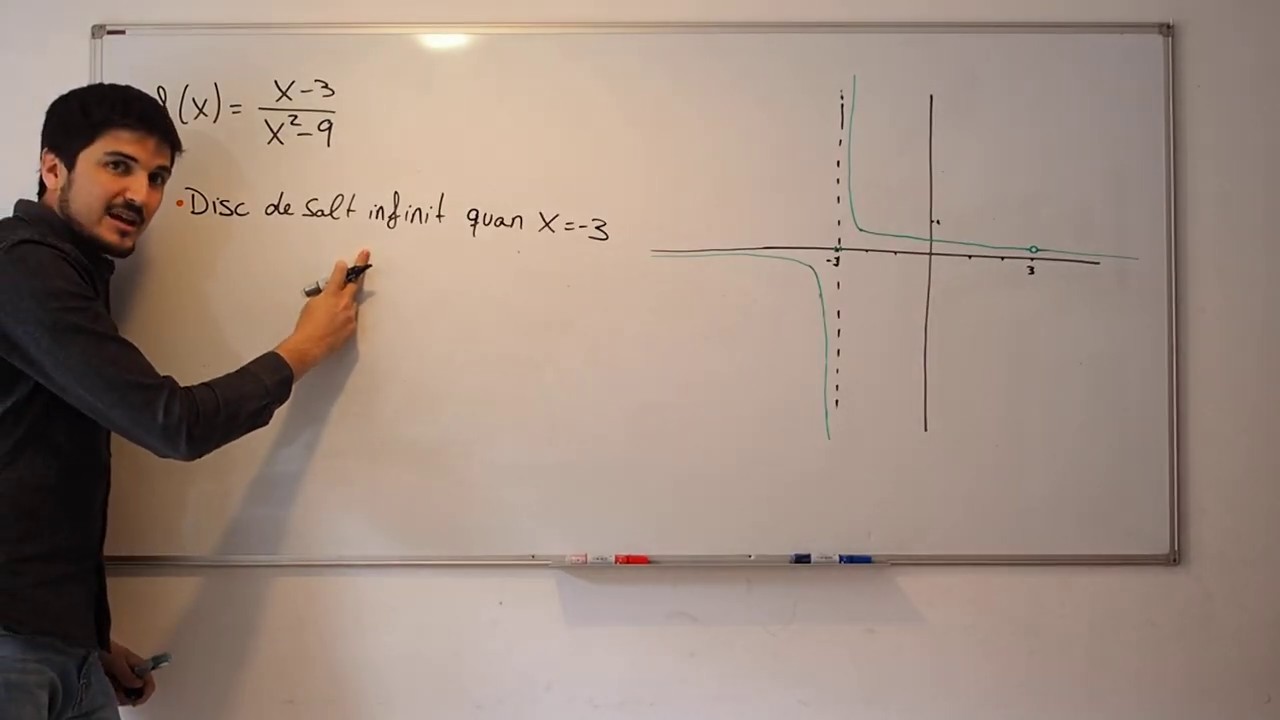 f(x) = x-3 / x²-9
• Disc de salt infinit quan x=-3
-3
3